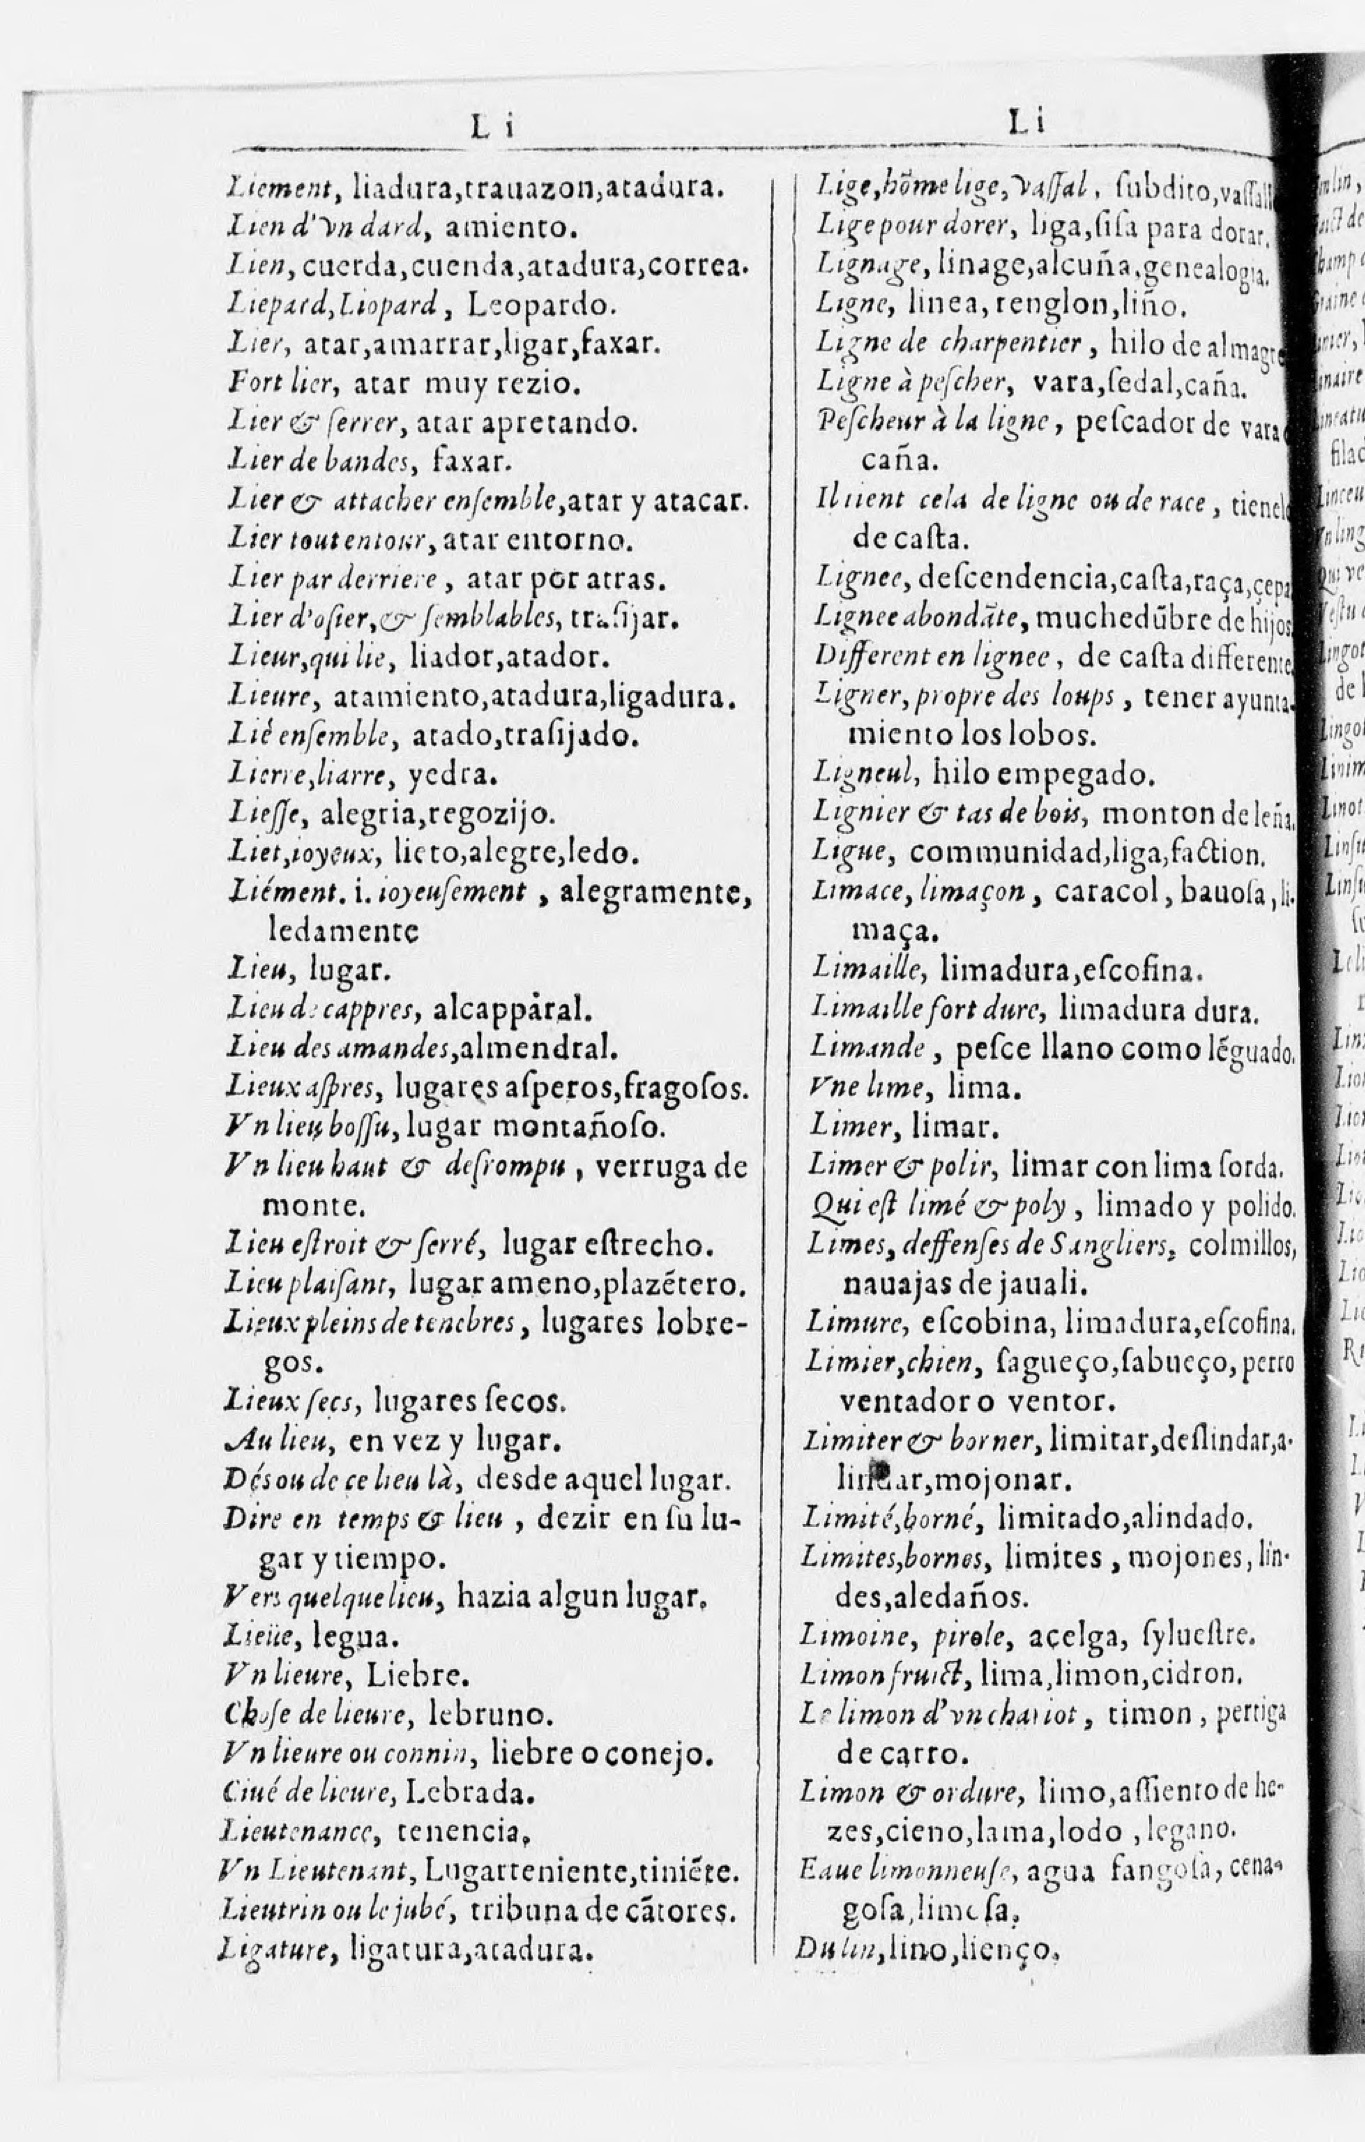 L i
Liement, liadura,trauazon,atadura.
Lien d'vn dard, amiento.
Lien, cuerda,cuenda,atadura,correa.
Liepard,Liopard, Leopardo.
Lier, atar,amarrar,ligar,faxar.
Fort lier, atar muy rezio.
Lier & ſerrer, atar apretando.
Lier de bandes, faxar.
Lier & attacher enſemble,atar y atacar.
Lier tout entour, atar entorno.
Lier par derriere, atar por atras.
Lier d'oſier,& ſemblables, traſijar.
Lieur,qui lie, liador,atador.
Lieure, atamiento,atadura,ligadura.
Lié enſemble, atado,traſijado.
Lierre,liarre, yedra.
Lieſſe, alegria,regozijo.
Liet,ioyeux, lieto,alegre,ledo.
Liément. i. ioyeuſement, alegramente,
ledamente
Lieu, lugar.
Lieu de cappres, alcapparal.
Lieu des amandes,almendral.
Lieux aſpres, lugares aſperos,fragoſos.
Vn lieu boſſu, lugar montañoſo.
Vn lieu haut & deſrompu, verruga de
monte.
Lieu eſtroit & ſerré, lugar eſtrecho.
Lieu plaiſant, lugar ameno,plazētero.
Lieux pleins de tenebres, lugares lobre-
gos.
Lieux ſecs, lugares ſecos.
Au lieu, en vez y lugar.
Dés ou de ce lieu là, desde aquel lugar.
Dire en temps & lieu, dezir en ſu lu-
gar y tiempo.
Vers quelque lieu, hazia algun lugar.
Lieüe, legua.
Vn lieure, Liebre.
Choſe de lieure, lebruno.
Vn lieure ou connin, liebre o conejo.
Ciué de lieure, Lebrada.
Lieutenance, tenencia,
Vn Lieutenant, Lugarteniente,tiniēte.
Lieutrin ou le jubé, tribuna de cātores.
Ligature, ligatura,atadura.
Li
Lige,hōme lige, vaſſal, ſubdito,
Lige pour dorer, liga,ſiſa para dorar.
Lignage, linage,alcuña,genealogia.
Ligne, linea, renglon,liño.
Ligne de charpentier, hilo de almagre
Ligne à peſcher, vara,ſedal,caña.
Peſcheur à la ligne, peſcador de vara
caña.
Il tient cela de ligne ou de race, tienelo
de caſta.
Lignee, deſcendencia,caſta,raça,çepa
Lignee abondāte, muchedūbre de hijos.
Different en lignee, de caſta differente.
Ligner, propre des loups, tener ayunta-
miento los lobos.
Ligneul, hilo empegado.
Lignier & tas de bois, monton de leña.
Ligue, communidad,liga,faction.
Limace, limaçon, caracol, bauoſa, li-
maça.
Limaille, limadura,eſcofina.
Limaille fort dure, limadura dura.
Limande, peſce llano como lēguado.
Vne lime, lima.
Limer, limar.
Limer & polir, limar con lima ſorda.
Qui eſt limé & poly, limado y polido.
Limes, deffenſes de Sangliers, colmillos,
nauajas de jauali.
Limure, eſcobina, limadura,eſcofina.
Limier,chien, ſagueço,ſabueço,perro
ventador o ventor.
Limiter & borner, limitar,deſlindar,a-
lindar,mojonar.
Limité,borné, limitado,alindado.
Limites,bornes, limites, mojones, lin-
des,aledaños.
Limoine, pirole, açelga, ſylueſtre.
Limon fruict, lima,limon,cidron.
Le limon d'vn chariot, timon, pertiga
de carro.
Limon & ordure, limo,aſſiento de he-
zes,cieno,lama,lodo, legano.
Eaue limonneuſe, agua fangoſa, cena-
goſa,limoſa,
Du lin,lino,lienço,